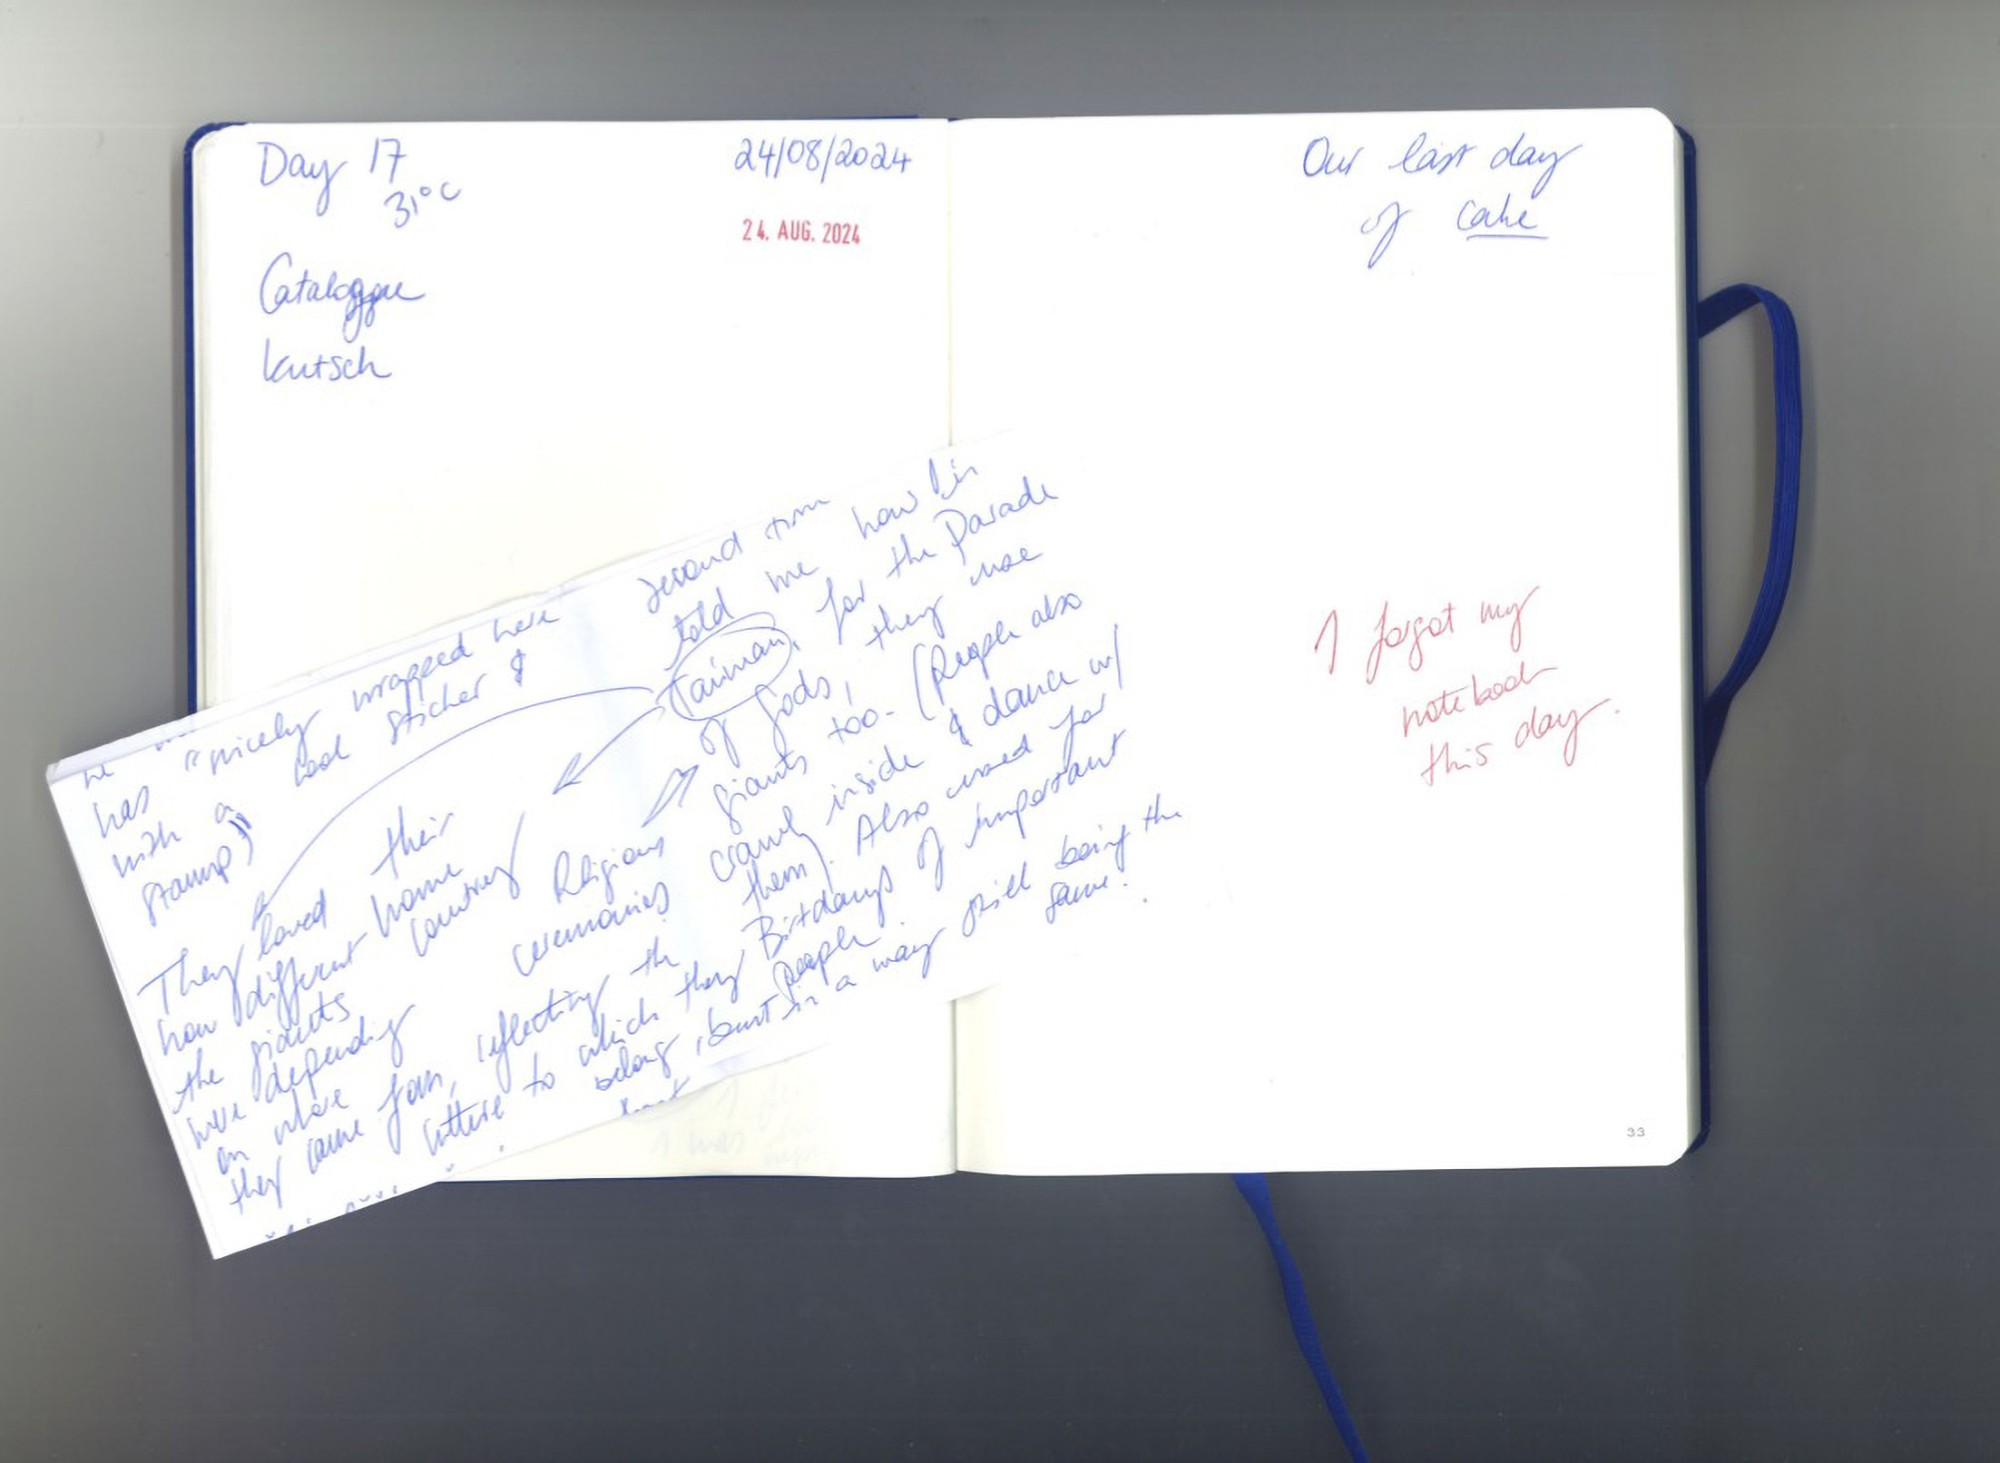 Day 17
31°C
24/08/2024
24. AUG. 2024
Catalogue
Kutsch
Our last day
of cake
I forgot my
notebook
this day.
33
second time
told me how in
Taiwan, for the Parade
of Gods, they use
giants too. (People also
crawl inside & dance w/
them). Also used for
Birtdays of important
people.
he
has "nicely wrapped here
with a cool sticker &
stamp)"
They loved their
how different home
the giants country
were depending
on where
they came from, reflecting the
culture to which they
belong, but in a way still being the
same.
Religious
ceremonies